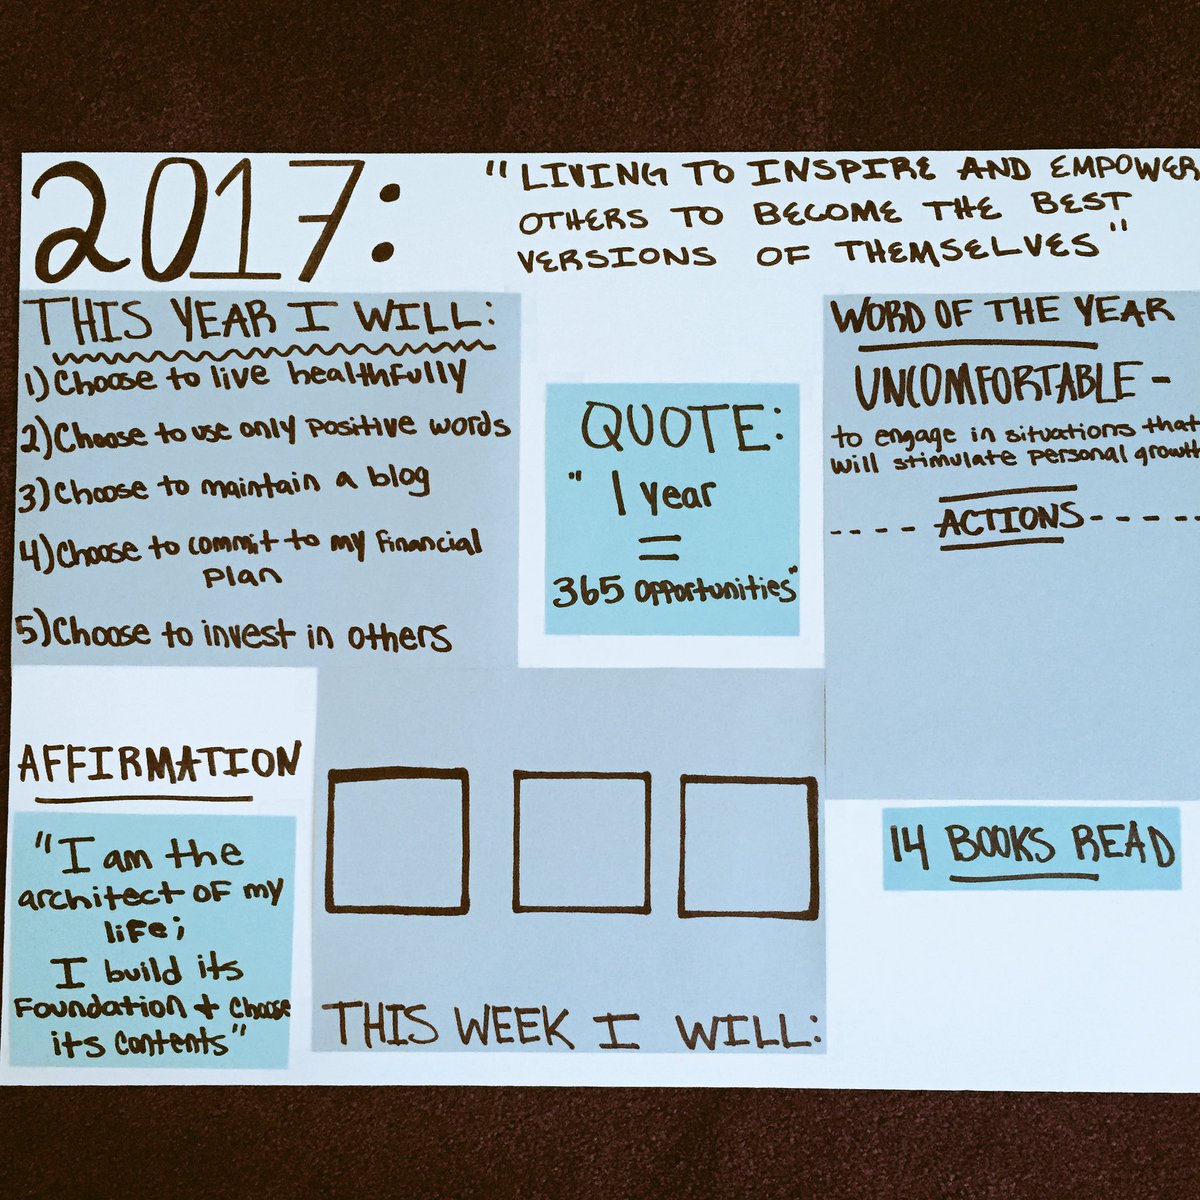 2017:
"LIVING TO INSPIRE AND EMPOWER
OTHERS TO BECOME THE BEST
VERSIONS OF THEMSELVES"
THIS YEAR I WILL:
1) Choose to live healthfully
2) Choose to use only positive words
3) Choose to maintain a blog
4) Choose to commit to my financial
plan
5) Choose to invest in others
QUOTE:
"1 year
=
365 opportunities"
WORD OF THE YEAR
UNCOMFORTABLE -
to engage in situations that
will stimulate personal growth
---- ACTIONS -----
AFFIRMATION
"I am the
architect of my
life;
I build its
foundation + choose
its contents"
THIS WEEK I WILL:
14 BOOKS READ